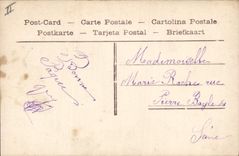 II
Post-Card – Carte Postale – Cartolina Postale
Postkarte – Tarjeta Postal – Briefkaart
Bonne
Pâques
Mademoiselle
Marie Roche rue
Pierre Bayle